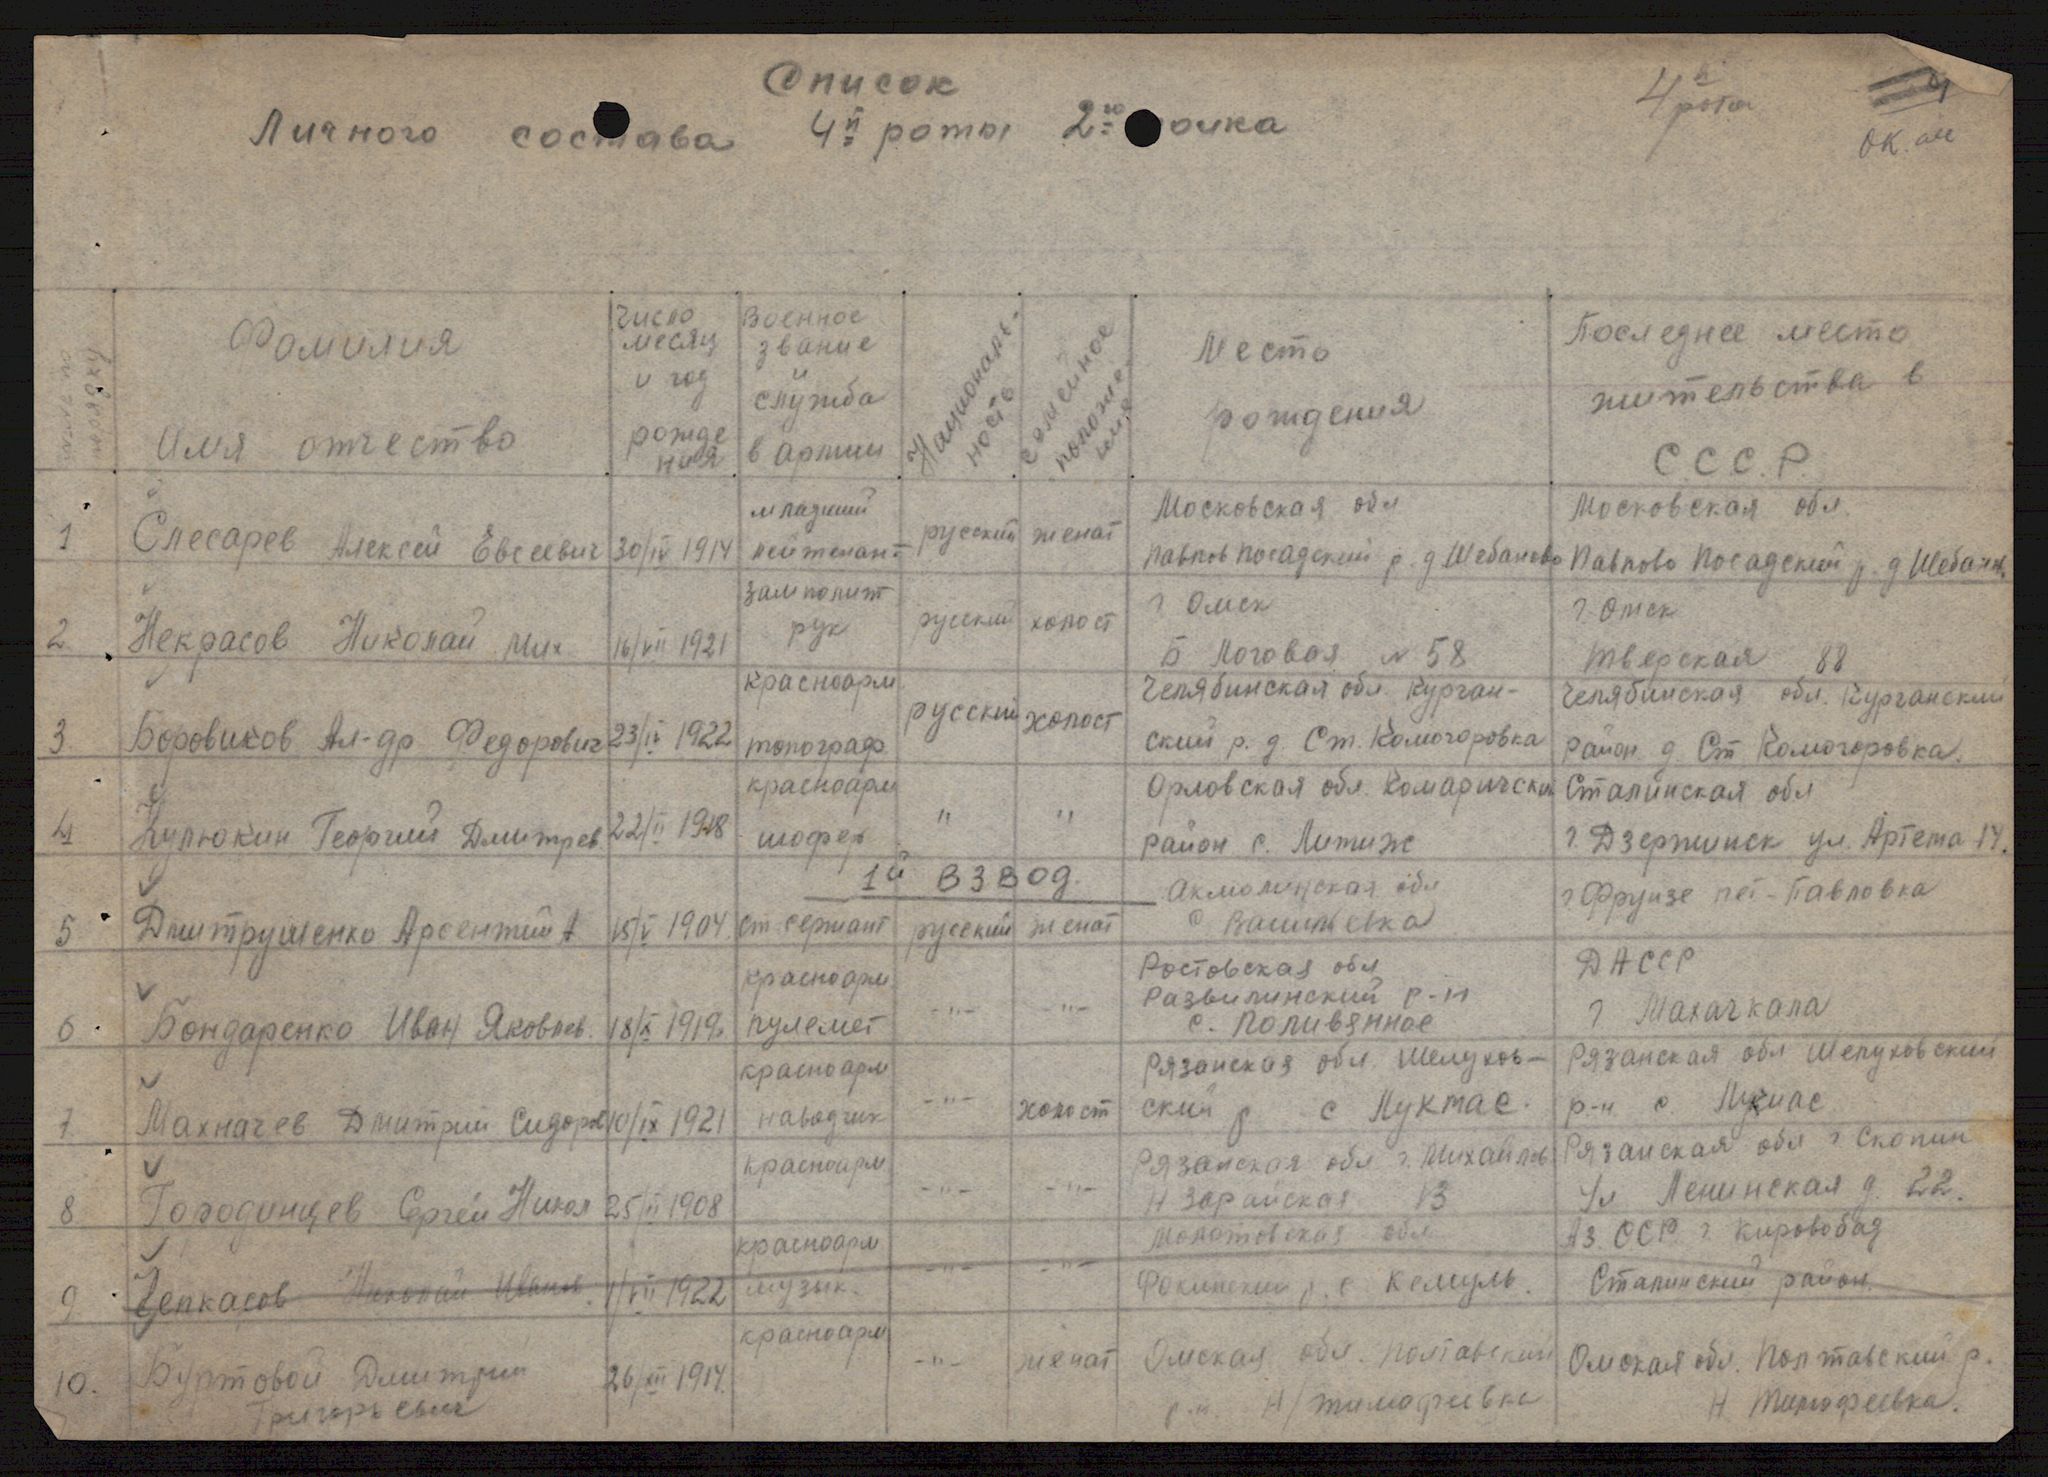 Список
Личного состава 4й роты 2го полка
4я рота
ОК.
Фамилия
Имя отчество
Число месяц и год рождения
Военное звание и служба в армии
Националь-ность
семейное положе-ния
Место рождения
Последнее место жительства в С.С.С.Р.
1 Слесарев Алексей Евсеевич 30/IV 1914 младший лейтенант русский женат
Московская обл Павлов Посадский р. д Шебаново
Московская обл. Павлово Посадский р. д Шебанов
2. Некрасов Николай Мих 16/VII 1921 замполит рук русский холост
г Омск Б Логовая № 58
г. Омск Тверская 88
3. Боровиков Ал-др Федорович 23/IV 1922 красноарм. топограф русский холост
Челябинская обл. Курган-ский р. д. Ст. Комогоровка
Челябинская обл. Курганский район д. Ст Комогоровка.
4 Кулюкин Георгий Дмитрев 22/II 1918 красноарм шофер " "
Орловская обл. Комарически район с. Литиж
Сталинская обл г. Дзержинск ул. Артема 14.
1й взвод.
5 Дмитрушенко Арсентий А 15/V 1904 ст. сержант русский женат
Акмолинская обл с Васильевка
г Фрунзе пет-Павловка
6 Бондаренко Иван Яковлев. 18/X 1919 красноарм пулемет -"- -"-
Ростовская обл Развилинский р-н с. Поливянное
ДАССР г Махачкала
7. Махначев Дмитрий Сидоров 10/IX 1921 красноарм наводчик -"- холост
Рязанская обл. Шелухов-ский р с Лукмас.
Рязанская обл Шелуховский р-н с.
8 Городинцев Сергей Никол 25/II 1908 красноарм -"- -"-
Рязанская обл г. Михайлов Н Зарайская 13
Рязанская обл г Скопин ул Ленинская д. 22.
9 Чепкасов Николай Иванов. 1/VII 1922 красноарм музык. -"- -"-
Молотовская обл Фокинский р. с Кемуль.
Аз. ССР. г Кировобад Сталинский район
10. Буртовой Дмитрий Григорьевич 26/XII 1914. красноарм -"- женат
Омская обл. Полтавский р-н. Н/Тимофеевка
Омская обл. Полтавский р. Н Тимофеевка.